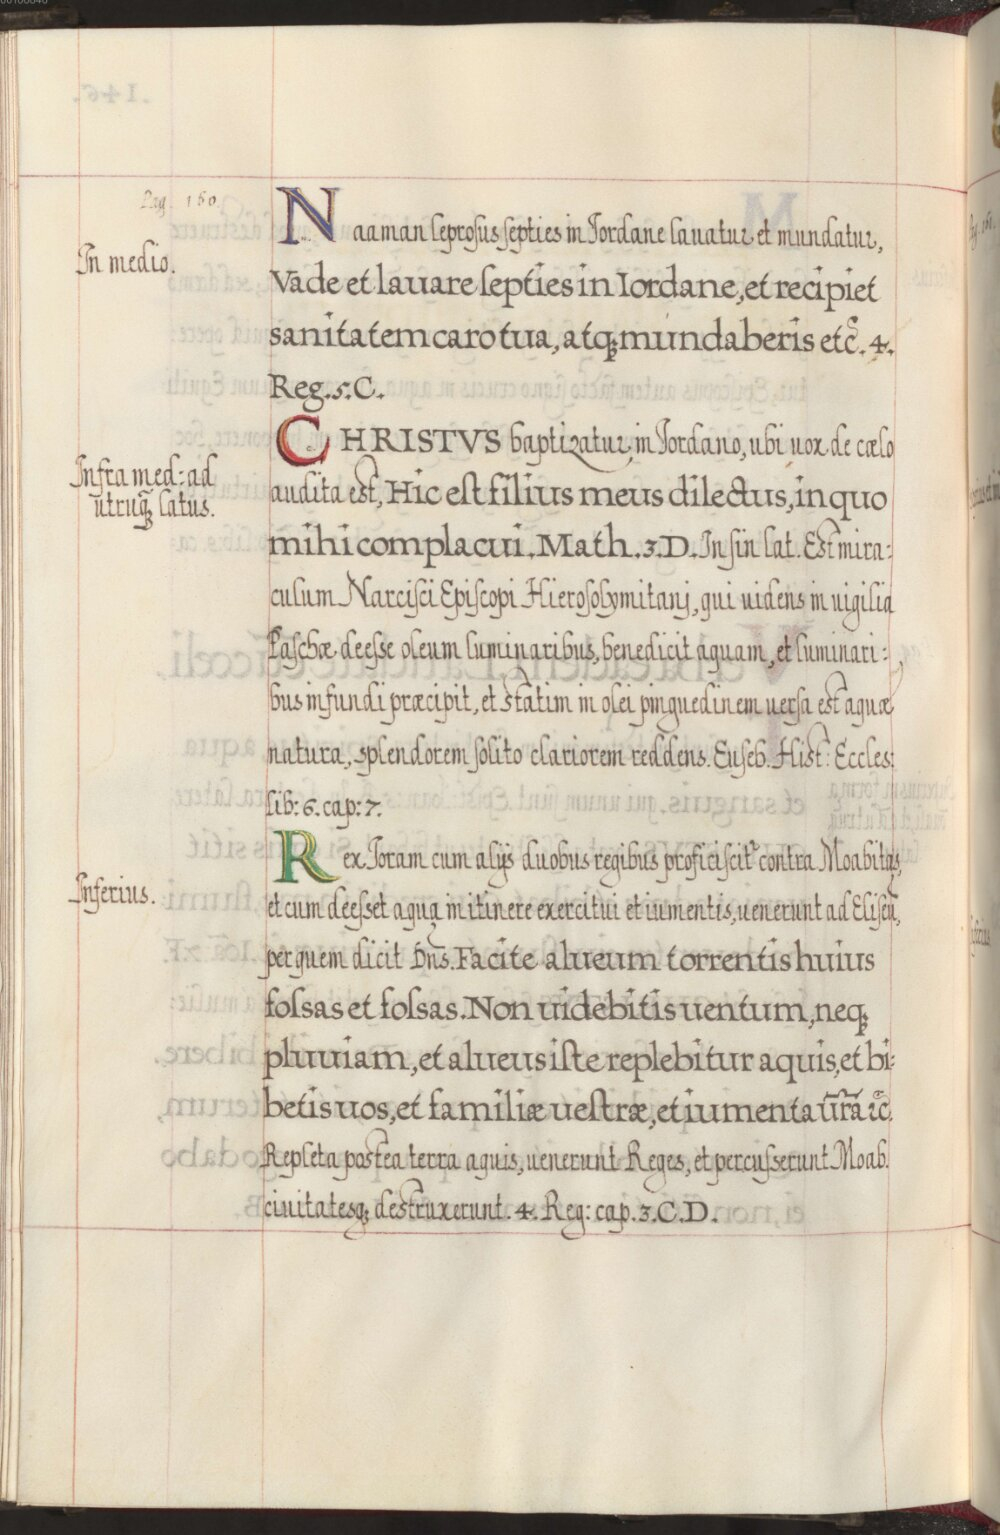 Pag. 160.
In medio.
Naaman leprosus septies in Jordane lauatur et mundatur,
Vade et lauare septies in Iordane, et recipiet
sanitatem caro tua, atq; mundaberis etc̃. 4.
Reg. 5. C.
Infra med: ad
utruq̃ latus.
CHRISTVS baptizatur in Jordano, ubi uox de cælo
audita est, Hic est filius meus dilectus, in quo
mihi complacui. Math. 3. D. In sin lat. Est mira:
culum Narcisci Episcopi Hierosolymitanj, qui uidens in uigilia
Paschæ deesse oleum luminaribus, benedicit aquam, et luminari:
bus infundi præcipit, et statim in olei pinguedinem uersa est aquæ
natura, splendorem solito clariorem reddens. Euseb. Hist: Eccles:
lib: 6. cap: 7.
Inferius.
Rex Joram cum alijs duobus regibus proficiscit᷑ contra Moabitas,
et cum deesset aqua in itinere exercitui et iumentis, uenerunt ad Eliseũ,
per quem dicit Dñs. Facite alueum torrentis huius
fossas et fossas. Non uidebitis uentum, neq;
pluuiam, et alueus iste replebitur aquis, et bi:
betis uos, et familiæ uestræ, et iumenta ũrã ⁊c̃.
Repleta postea terra aquis, uenerunt Reges, et percusserunt Moab.
ciuitatesq; destruxerunt. 4. Reg: cap. 3. C. D.